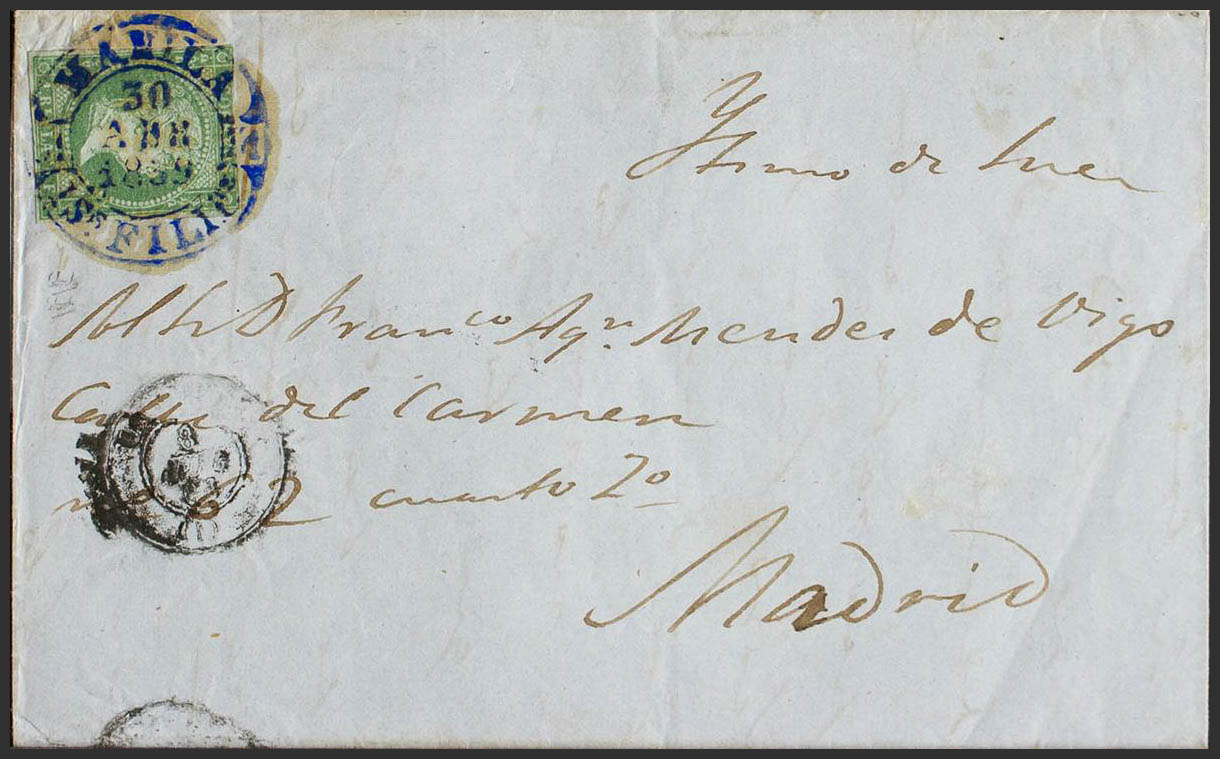 MANILA
30
ABR
1859
YS.S FILIP.S
Ystmo de Suez
Al Sr D Franco Agn Mendez de Vigo
Calle del Carmen
no 62 cuarto 2o
Madrid